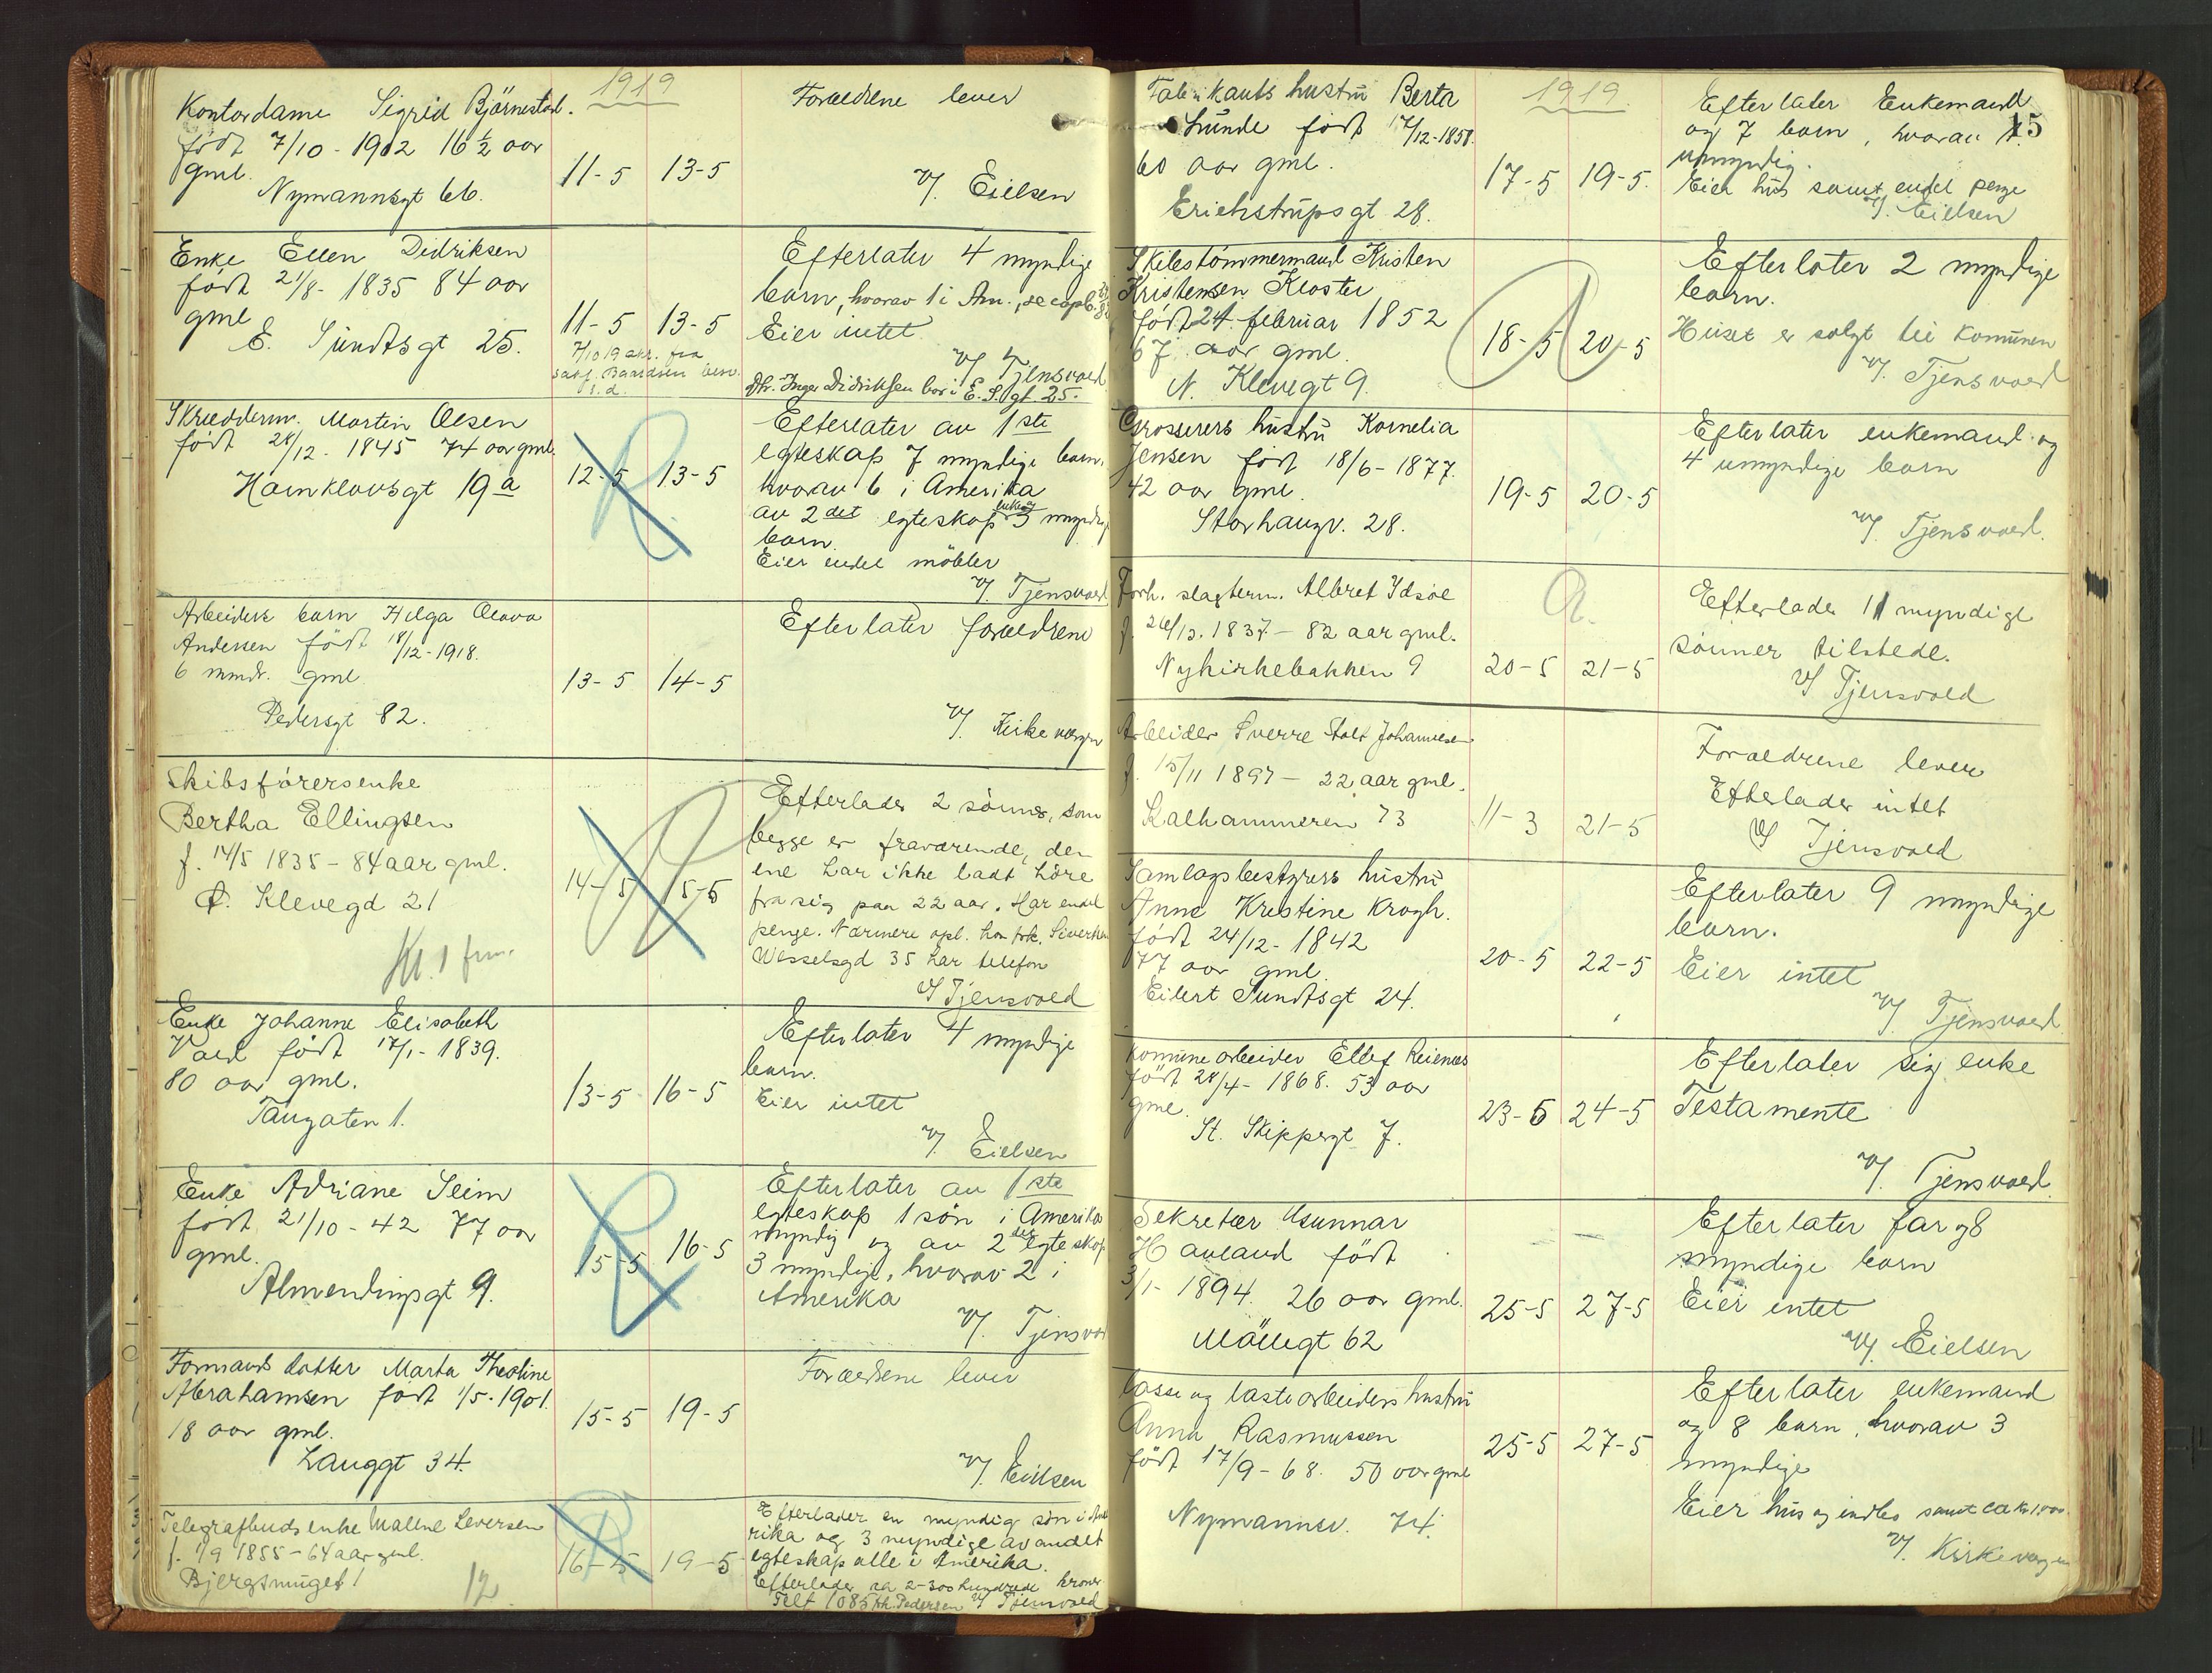 1919
Kontordame Sigrid Björnestad.
födt 7/10 - 1902 16 1/2 aar
gml.
Nymannsgt 66.
11-5 13-5
Foræeldrene lever
V/ Eielsen
Enke Ellen Didriksen
födt 21/8 - 1835 84 aar
gml
E. Sundtsgt 25.
11-5 13-5
7/10 19 skr. fra
Efterlater 4 myndige
barn, hvorav 1 i Am.,
Eier intet
V/ Tjensvold
Inger Didriksen bor i E. S. gt 25.
Skrædderm. Martin Olsen
födt 28/12 - 1845 74 aar gml.
Harnklovsgt 19 a
12-5 13-5
Efterlater av 1ste
egteskap 7 myndige barn.
hvorav 6 i Amerika
av 2det egteskap enke og 3 myndige
barn.
Eier endel möbler
V/ Tjensvold
Arbeiders barn Helga Olava
Andersen födt 18/12 - 1918.
6 mndr. gml
Pedersgt 82.
13-5 14-5
Efterlater foraeldrene
V/ Kirkevergen
Skibsförersenke
Bertha Ellingsen
f. 14/5 1835 - 84 aar gml.
O. Klevegd 21
14-5 15-5
Efterlader 2 sönner, som
begge er fraværende, den
ene har ikke ladt höre
fra sig paa 22 aar. Har endel
penge. Nærmere opl. hos frk. Sivertsen
Wesselsgd 35 har telefon
V/ Tjensvold
Enke Johanne Elisabeth
Vold födt 17/1 - 1839.
80 aar gml.
Taugaten 1.
13-5 16-5
Efterlater 4 myndige
barn.
Eier intet
V/ Eielsen
Enke Adriane Seim
födt 21/10 - 42 77 aar
gml.
Almendingsgt 9.
15-5 16-5
Efterlater av 1ste
egteskap 1 sön i Amerika
myndig og av 2det egteskap
3 myndige, hvorav 2 i
Amerika
V/ Tjensvold
Formands datter Marta Theoline
Abrahamsen födt 1/5 - 1901.
18 aar gml.
Langgt 34.
15-5 19-5
Foraeldrene lever
V/ Eielsen
Telegrafbuds enke Malene Seversen
f. 1/9 1855 - 64 aar gml.
Bjergsmuget 1
12
16-5 19-5
Efterlader en myndig sön i Ame
rika og 3 myndige av andet
egteskap alle i Amerika.
Efterlader ca 2-300 hundrede kroner
Telf 1085 hr. Pedersen V/ Tjensvold
1919.
15
Fabrikants hustru Berta
Lunde födt 17/12 - 1858.
60 aar gml.
Erichstrupsgt 28.
17-5 19-5.
Efterlater Enkemand
og 7 barn, hvorav 1
umyndig.
Eier hus samt endel penge
V/ Eielsen
Skibstömmermand Kristen
Kristensen Kloster
födt 24. februar 1852
67 aar gml.
N. Klevegt 9.
18-5 20-5
Efterlater 2 myndige
barn.
Huset er solgt til Komunen
V/ Tjensvold
Grosserers hustru Kornelia
Jensen födt 18/6 - 1877.
42 aar gml.
Storhaugv. 28.
19-5 20-5
Efterlater enkemand og
4 umyndige barn
V/ Tjensvold.
Forh. slagterm. Albret Idsöe
f. 26/12. 1837 - 82 aar gml.
Nykirkebakken 9
20-5 21-5
Efterlader 11 myndige
sönner tilstede.
V/ Tjensvold
Arbeider Sverre Stolt Johannesen
f. 15/11 1897 - 22 aar gml.
Kalhammeren 73
11-3 21-5
Foraeldrene lever
Efterlader intet
V/ Tjensvold
Samlagsbestyrers hustru
Anne Kristine Krogh.
födt 24/12 - 1842
77 aar gml.
Eilert Sundtsgt 24.
20-5 22-5
Efterlater 9 myndige
barn.
Eier intet
V/ Tjensvold
Komunearbeider Ellef Reienæs
födt 28/4 - 1868. 53 aar
gml.
St. Skippergt 7.
23-5 24-5
Efterlater sig enke
Testamente
V/ Tjensvold
Sekretær Gunnar
Hauland födt
3/1 - 1894. 26 aar gml.
Möllegt 62
25-5 27-5
Efterlater far og 8
myndige barn
Eier intet
V/ Eielsen
Losse og lastearbeiders hustru
Anna Rasmussen
födt 17/9 - 68. 50 aar gml
Nymannsv. 74.
25-5 27-5
Efterlater enkemand
og 8 barn, hvorav 3
myndige
Eier hus og indbo samt ca kr 1000.
V/ Kirkevergen